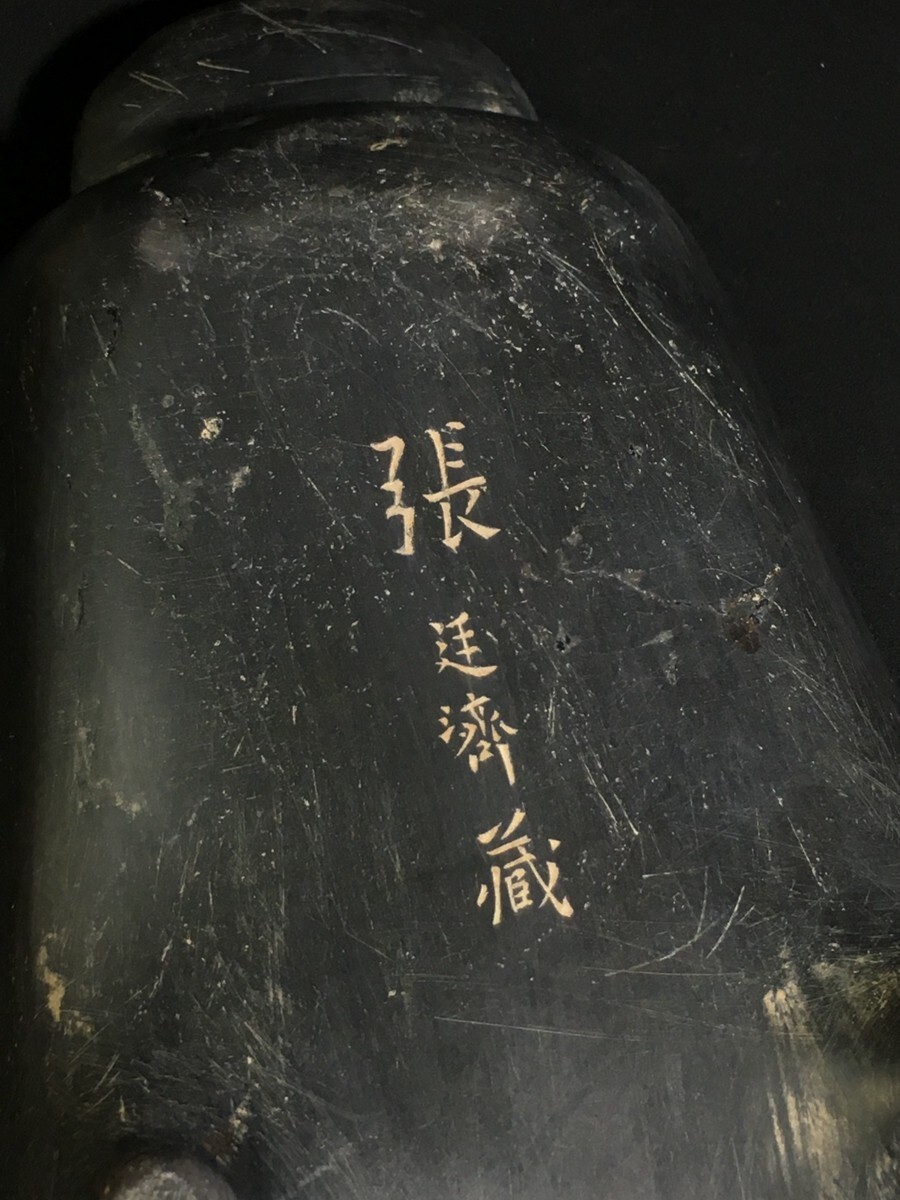 張廷濟藏